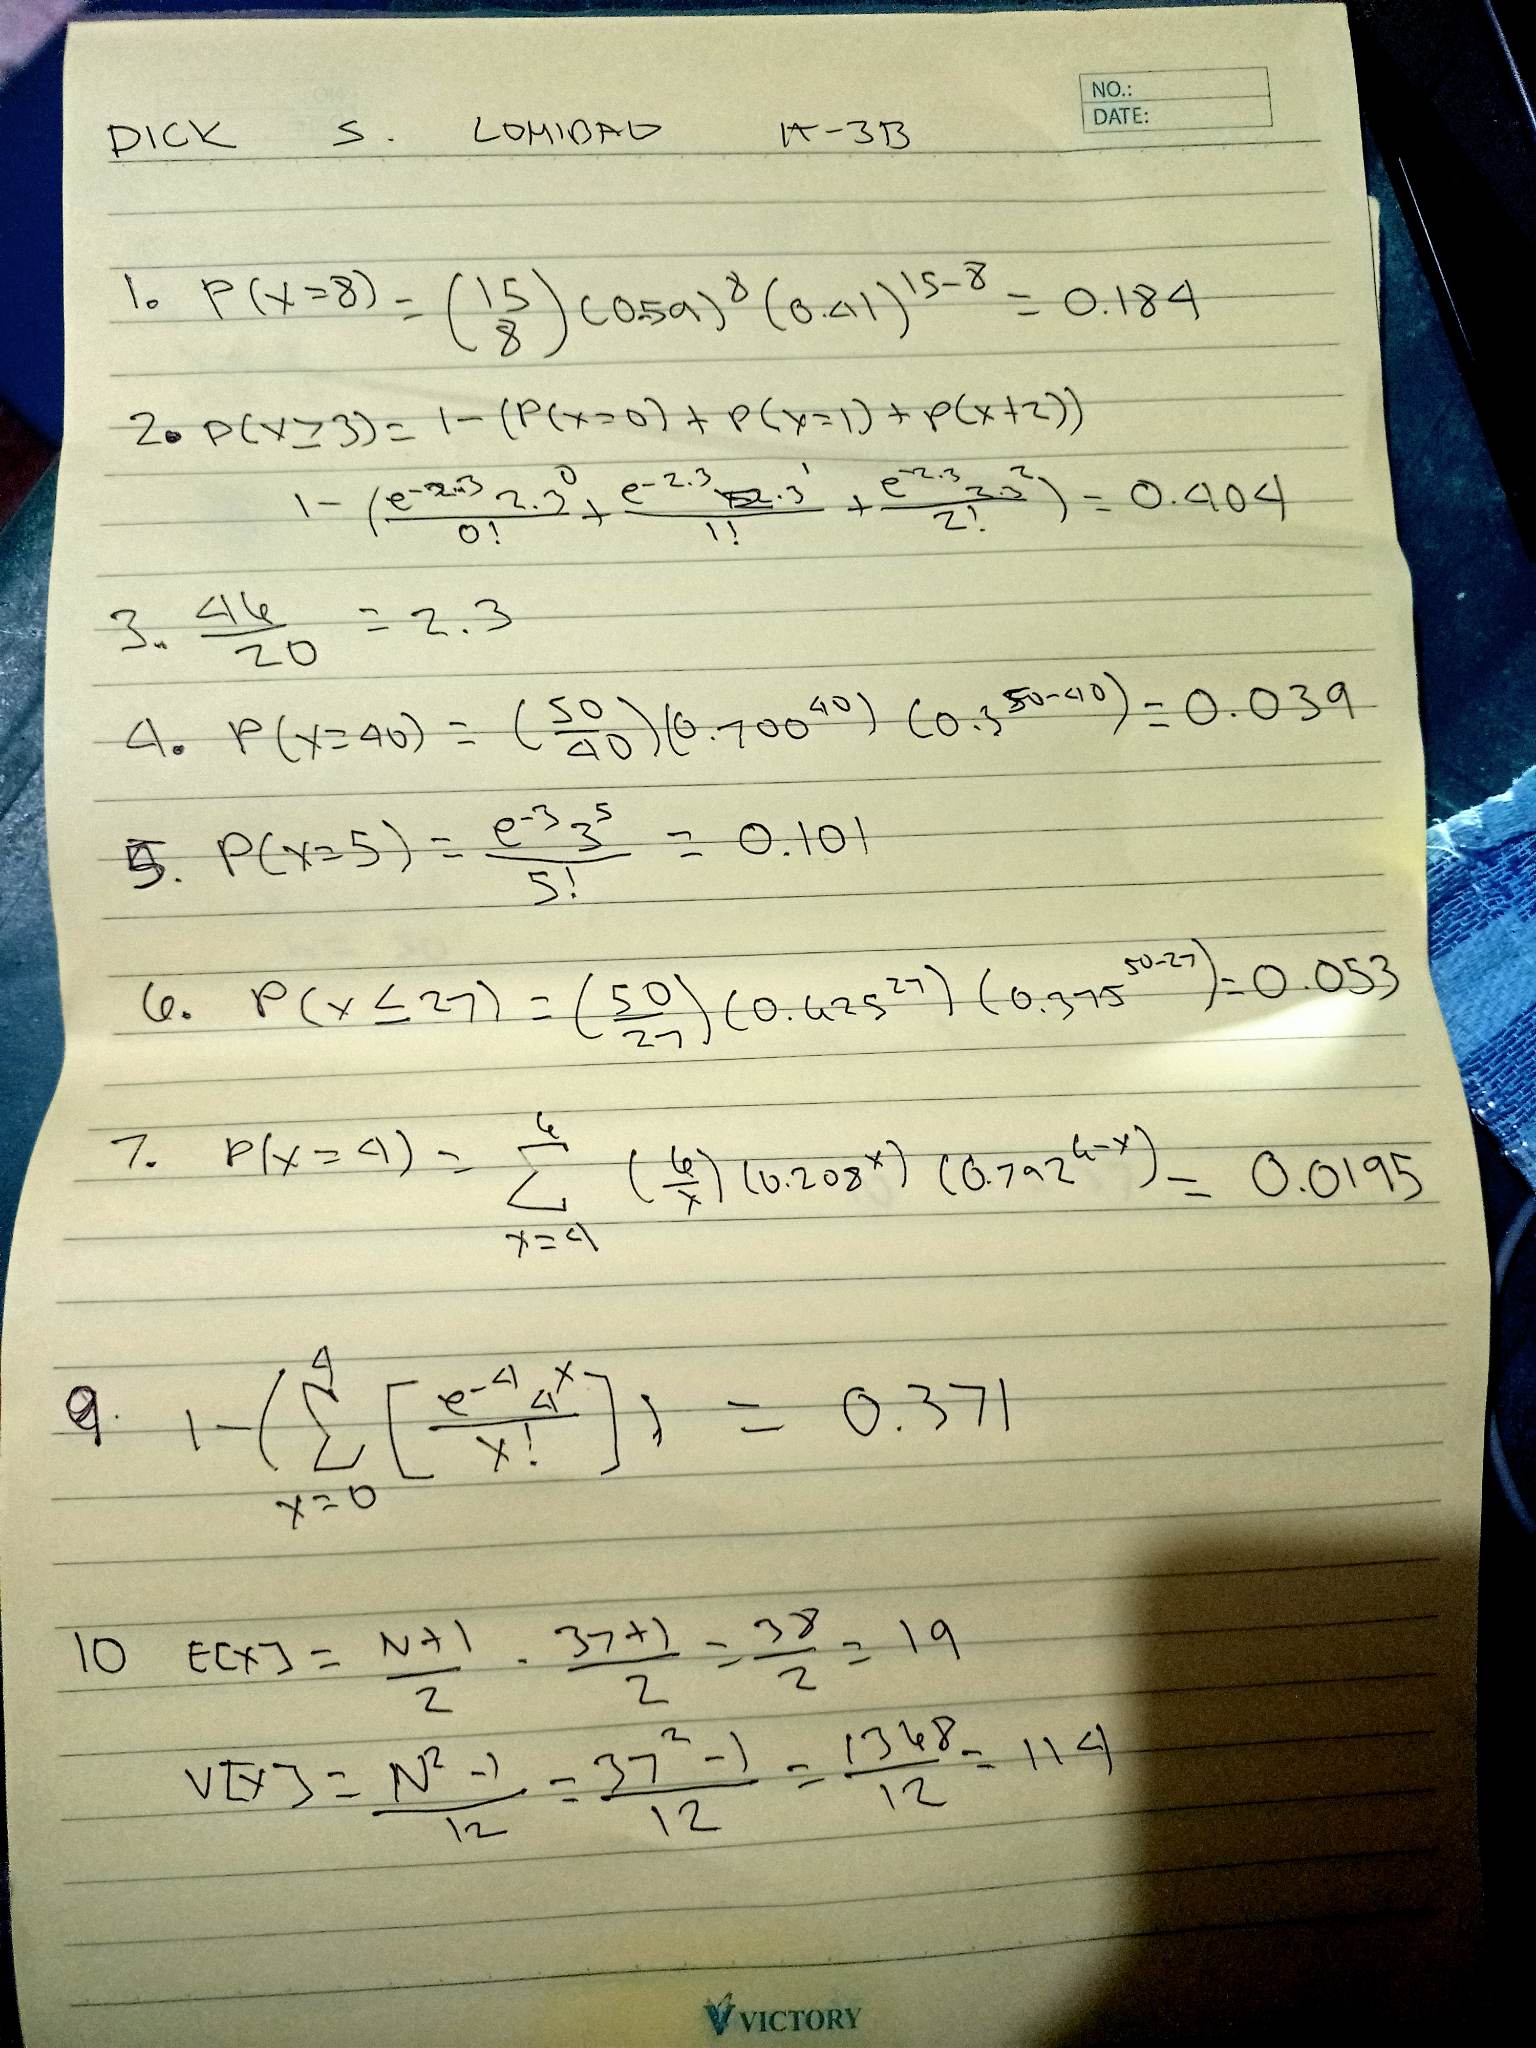 NO.:
DATE:
DICK S. LOMIBAO IT-3B
1. P(x=8) = (15 8) (0.59)^8 (0.41)^15-8 = 0.184
2. P(x≥3) = 1-(P(x=0) + P(x=1) + P(x+2))
1-(e^-2.3 2.3^0/0! + e^-2.3 2.3^1/1! + e^-2.3 2.3^2/2!) = 0.404
3. 46/20 = 2.3
4. P(x=40) = (50/40)(0.700^40) (0.3^50-40) = 0.039
5. P(x=5) = e^-3 3^5/5! = 0.101
6. P(x≤27) = (50/27) (0.625^27) (0.375^50-27) = 0.053
7. P(x=4) = 6∑x=4 (6/x) (0.208^x) (0.792^6-x) = 0.0195
9. 1-(4∑x=0 [e^-4 4^x/x!]) = 0.371
10 E[X] = N+1/2 . 37+1/2 = 38/2 = 19
V[X] = N^2-1/12 = 37^2-1/12 = 1368/12 = 114
VICTORY